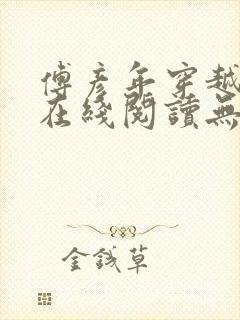 傅彥年穿越
在綫閱讀無
金錢草